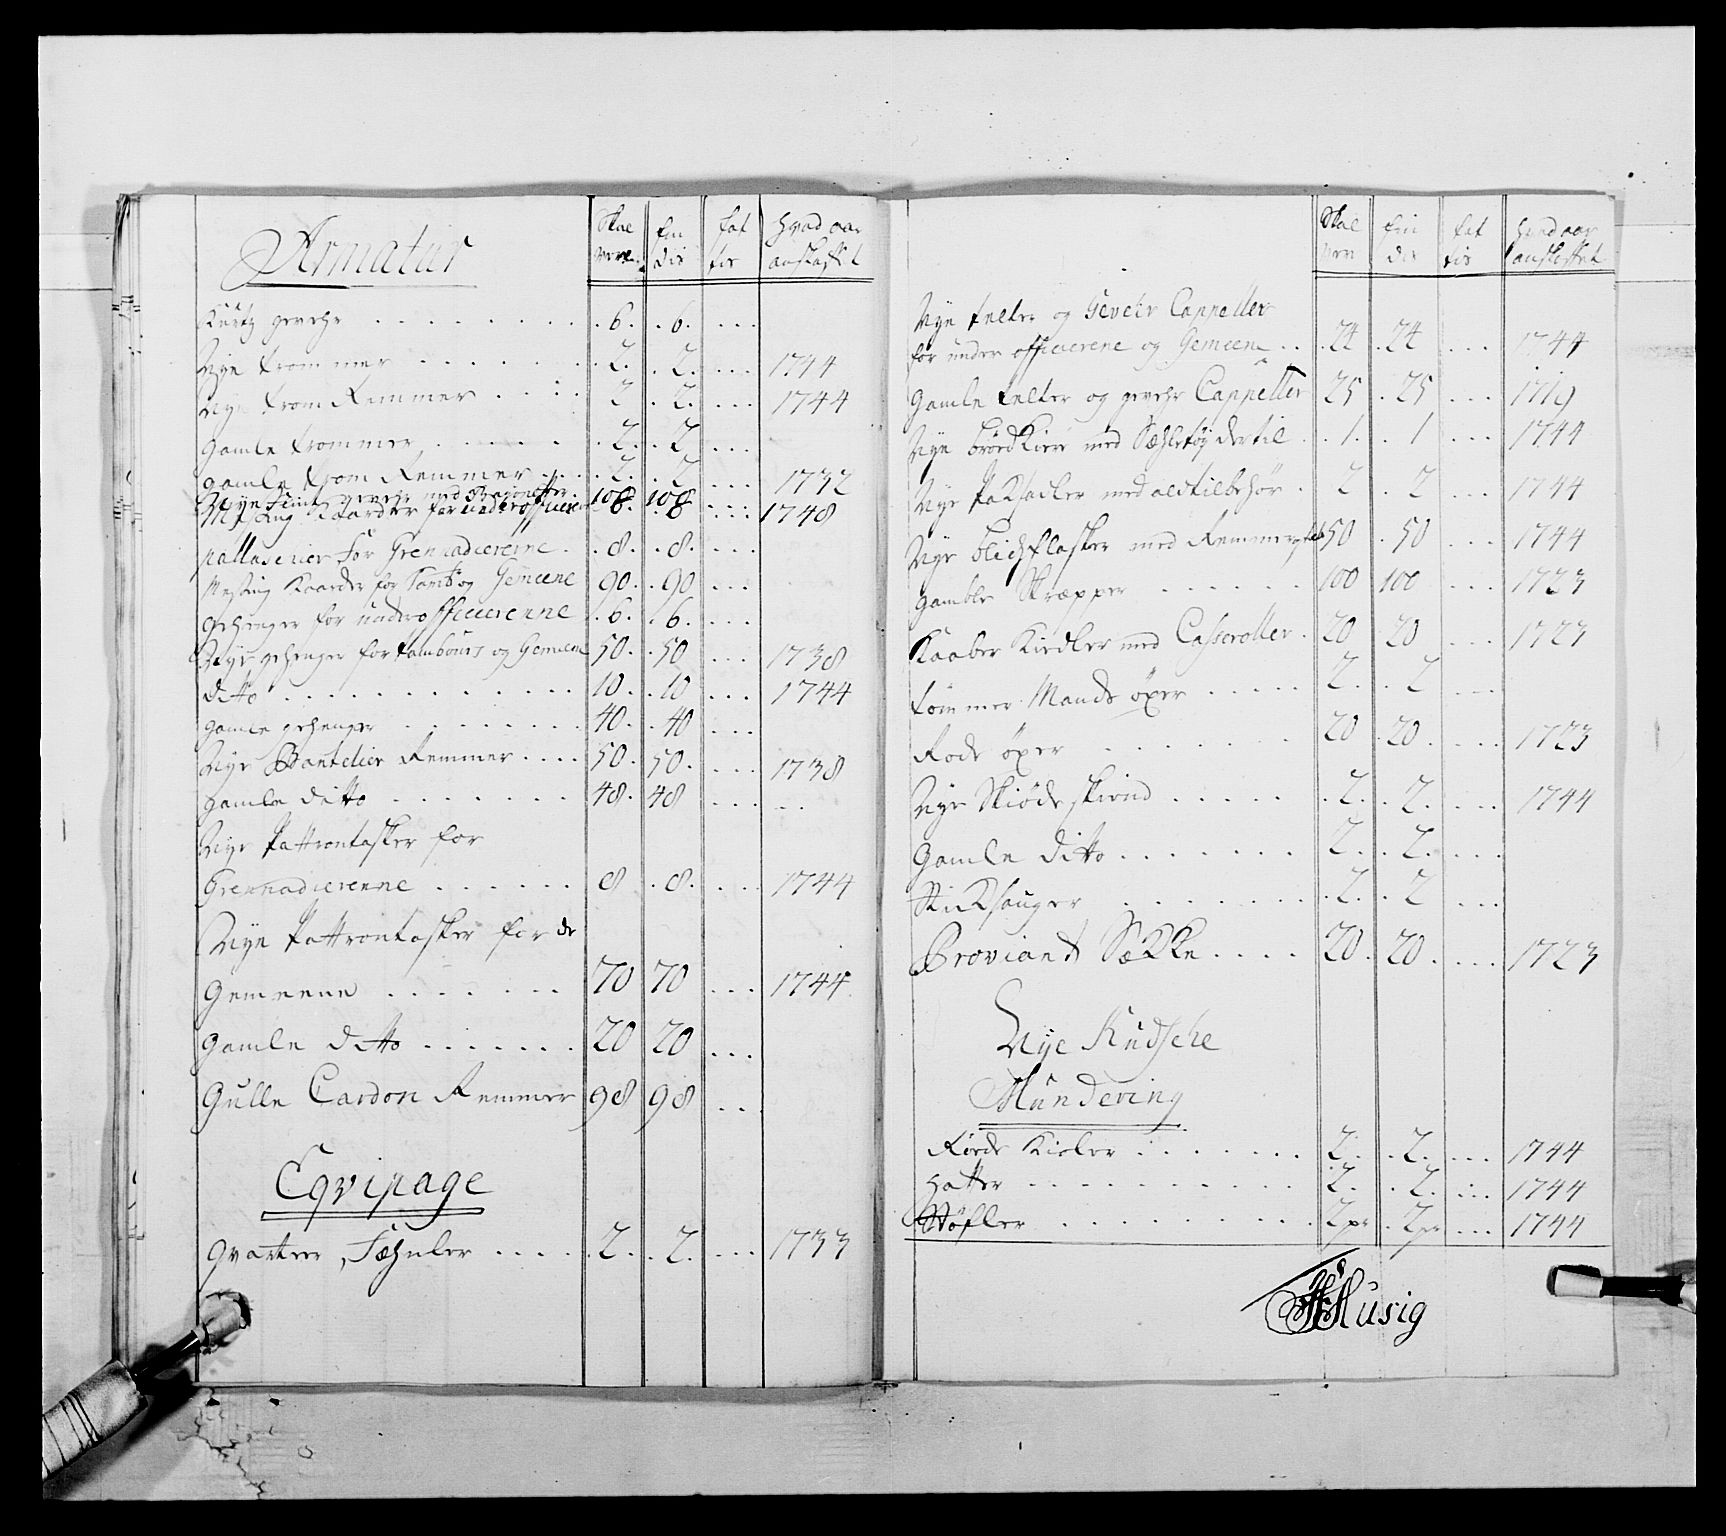 Armatur
Skal være
fin des
fat tes
Hvad aar anskaffet
Kurtz gevehr . . . . . . . . 6. . 6. . . .
Nye trommer . . . . . . . 2. . 2. . . . 1744
Nye trom Remmer . . . . 2 . 2. . . . 1744
Gamle trommer . . . . . . 2. . 2 . . .
gamle trom Remmer . . . . 2. . 2 . . . 1732
Nye flint gevehr med Bajonetter . 108 108 . . . 1748
Messing Kaarder for underofficerer 6. . 6 . . .
pallascher for Grenadiererne . . 8. . 8. . . .
Messing Kaarder for Tamb: og Gemeene 90. . 90 . . .
gehenger for underofficererne . 6. . 6. . . .
Nye gehenger for tambours og Gemeene 50. . 50 . . . 1738
ditto . . . . . . . . . . . 10. . 10 . . . 1744
gamle gehenger . . . . . . 40. . 40 . . .
Nye Bantelier Remmer . . . . 50. . 50. . . . 1738
gamle ditto . . . . . . . 48. . 48 . . . . .
Nye Pattrontasker for
Grennadiererne . . . . . . 8 . 8. . . . 1744
Nye Pattrontasker for de
Gemeene . . . . . . . 70 70 . . . 1744
gamle ditto . . . . . . . 20 20 . . .
Gulle Cardon Remmer 98 98 . . .
Eqvipage
Qvarteer Fæhnler . . . . . 2. . 2. . . . 1733
Skal være
fin des
fat tes
Hvad aar anskaffet
Nye telter og Gevehr Cappeller
for under officererne og Gemeene . . . 24 . 24 . . . 1744
Gamle telter og gevehr Cappeller 25 . 25 . . . 1719
Nye brød Kiere med Sæhletøy dertil . . 1. . 1 . . . 1744
Nye Paksadler med alt tilbehør . 2 2 . . . 1744
Nye blichflasker med Remmer 50 . 50 . . . 1744
gamble Skræpper . . . . . . 100 100 . . . 1723
Kaaber Kiedler med Casseroller . 20 20 . . . 1723
tømmer Mands øxer . . . . . 2. . 2 . . .
Rode øxer . . . . . . . 20 . 20 . . . . 1723
Nye Skiødeskind . . . . . . 2. . 2. . . . 1744
Gamle ditto . . . . . . . 2. . 2. . . .
Stiksauger . . . . . . . . 2. . 2 . . .
Proviant Sække . . . . 20. . 20. . . . 1723
Nye Kudsche
Mundering
Røde Kioler . . . . . . . 2. . 2. . . . 1744
Hatter . . . . . . . . . . 2. . 2. . . . 1744
Støfler . . . . . . . . . . 2pr . 2pr . . . 1744
Husig